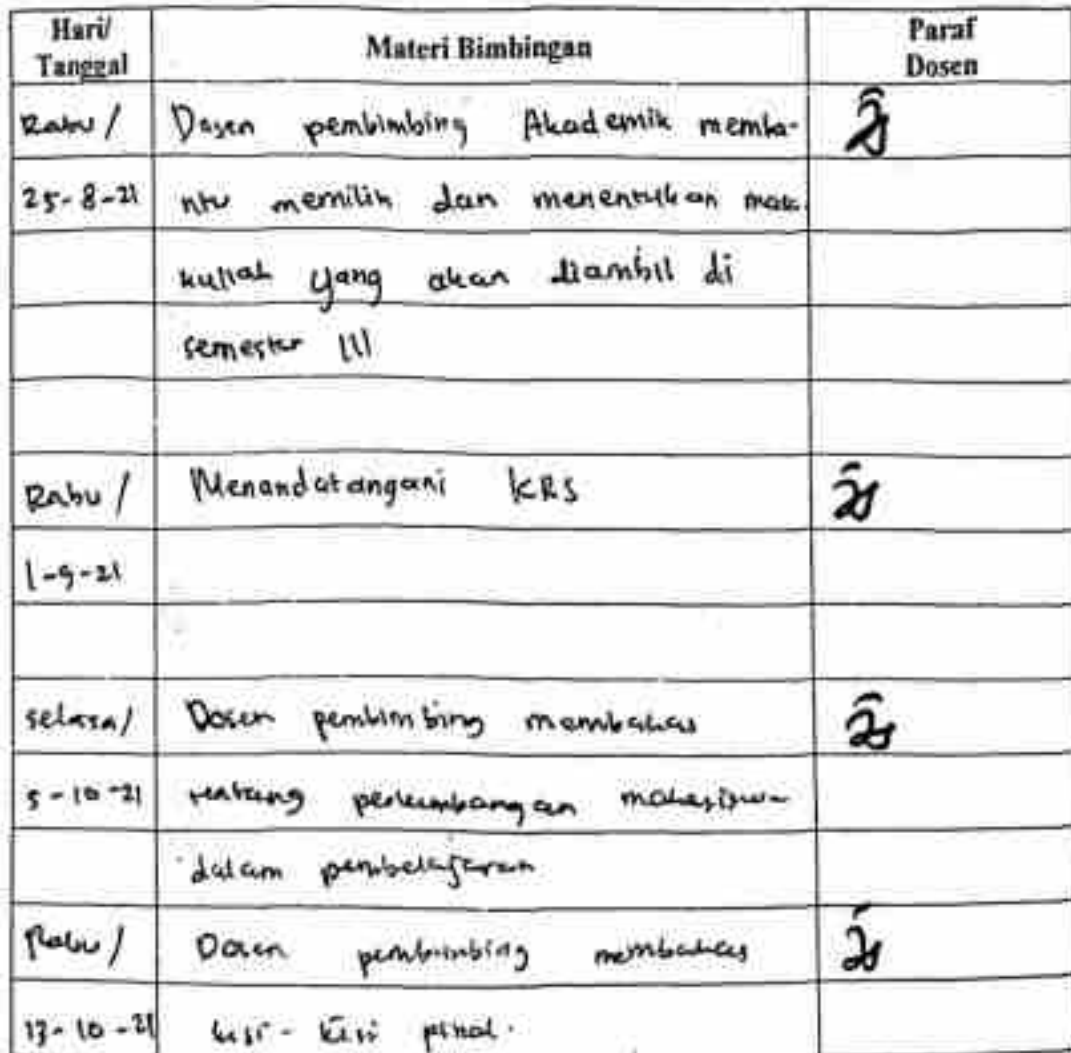 Hari/ Tanggal Materi Bimbingan Paraf Dosen
Rabu / Dosen pembimbing Akademik memba-
25-8-21 ntu memilih dan menentukan mata
kuliah yang akan diambil di
semester III
Rabu / Menandatangani KRS
1-9-21
selasa/ Dosen pembimbing membahas
5-10-21 tentang perkembangan mahasiswa
dalam pembelajaran
Rabu / Dosen pembimbing membahas
13-10-21 kisi-kisi